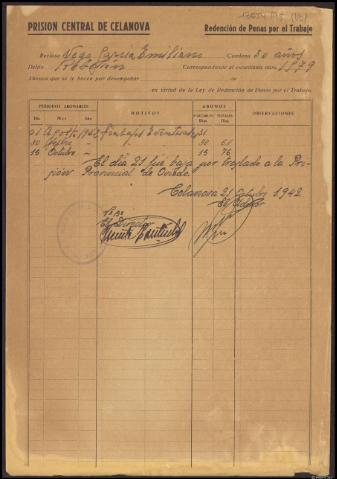 PRISION CENTRAL DE CELANOVA
Redención de Penas por el Trabajo
Recluso Vega García Emiliano Condena 30 años
Delito Rebelión Correspondiente al expediente núm. 1979
Abonos que se le hacen por desempeñar en
en virtud de la Ley de Redención de Penas por el Trabajo.
PERIODOS ABONABLES MOTIVOS ABONOS OBSERVACIONES
Día Mes Año PARCIALES Días TOTALES Días
31 Agosto 1942 Trabajos Eventuales 31
30 Sepbre - 30 61
15 Octubre - 15 76
El día 21 fué baja por traslado a la Pri-
sión Provincial de Oviedo.
Celanova 21 Octubre 1942
Vº Bº
El Director